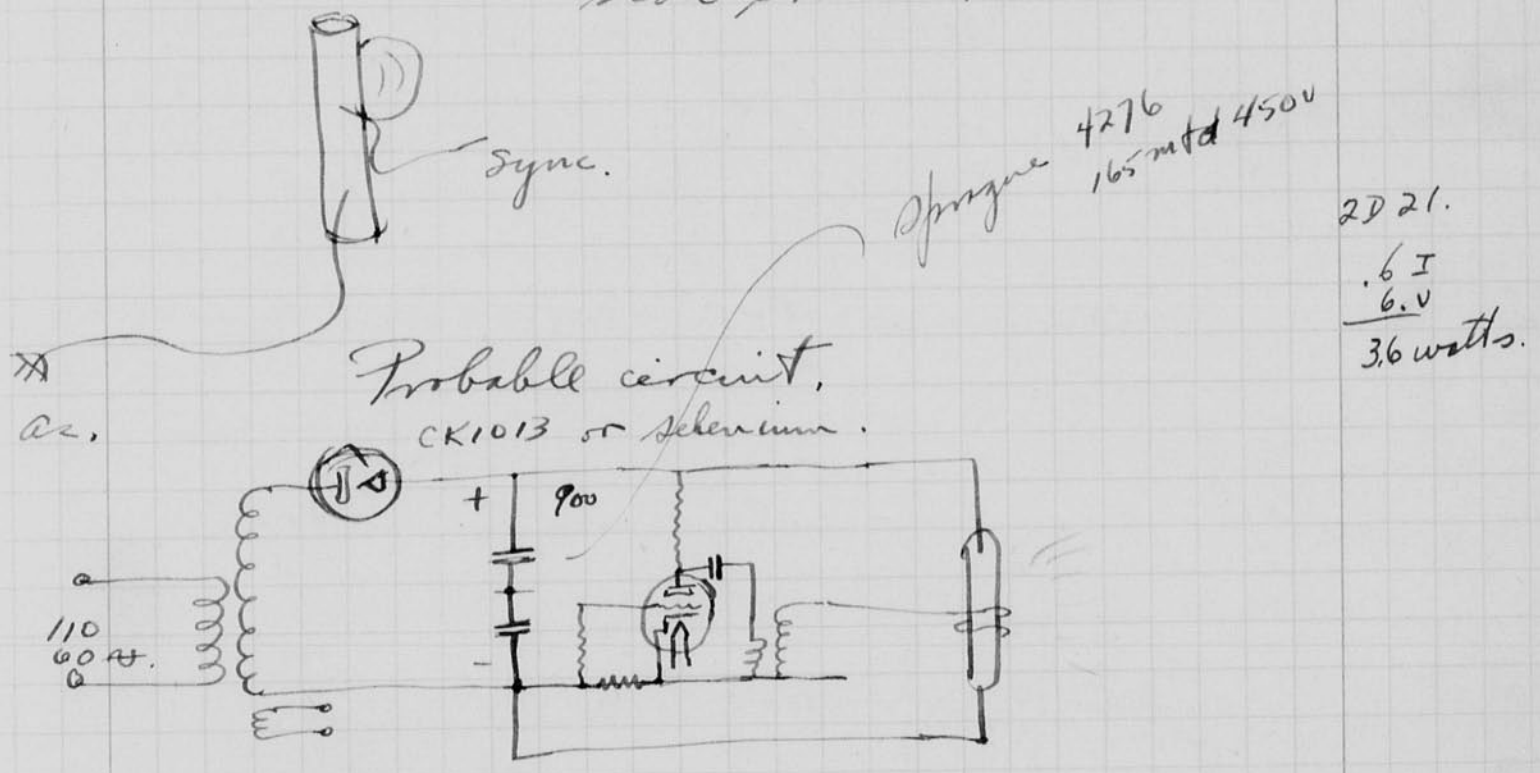 sync.
Sprague 4276
165 mfd 450v
2D 21.
.6 I
6. v
3.6 watts.
ac.
Probable circuit.
CK1013 or selenium.
+ 900
110
60
-